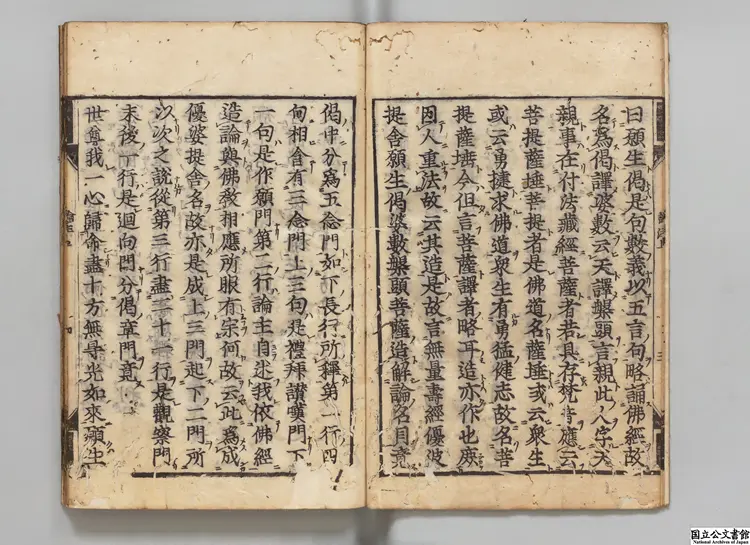 曰願生偈是句數義以五言句略誦佛經故
名爲偈譯婆數云天譯槃頭言親此人字天
親事在付法藏經菩薩者若具存梵音應云
菩提薩埵菩提者是佛道名薩埵或云衆生
或云勇捷求佛道衆生有勇猛健志故名菩
提薩埵今但言菩薩譯者略耳造亦作也庶
因人重法故云其造是故言無量壽經優波
提舍願生偈婆數槃頭菩薩造解論名目竟
偈中分爲五念門如下長行所釋第一行四
句相含有三念門上三句是禮拜讃嘆門下
一句是作願門第二行論主自述我依佛經
造論與佛教相應所服有宗何故云此爲成
優婆提舍名故亦是成上三門起下二門所
以次之說從第三行盡二十一行是觀察門
末後一行是迴向門分偈章門竟
世尊我一心歸命盡十方無㝵光如來願生
国立公文書館
National Archives of Japan